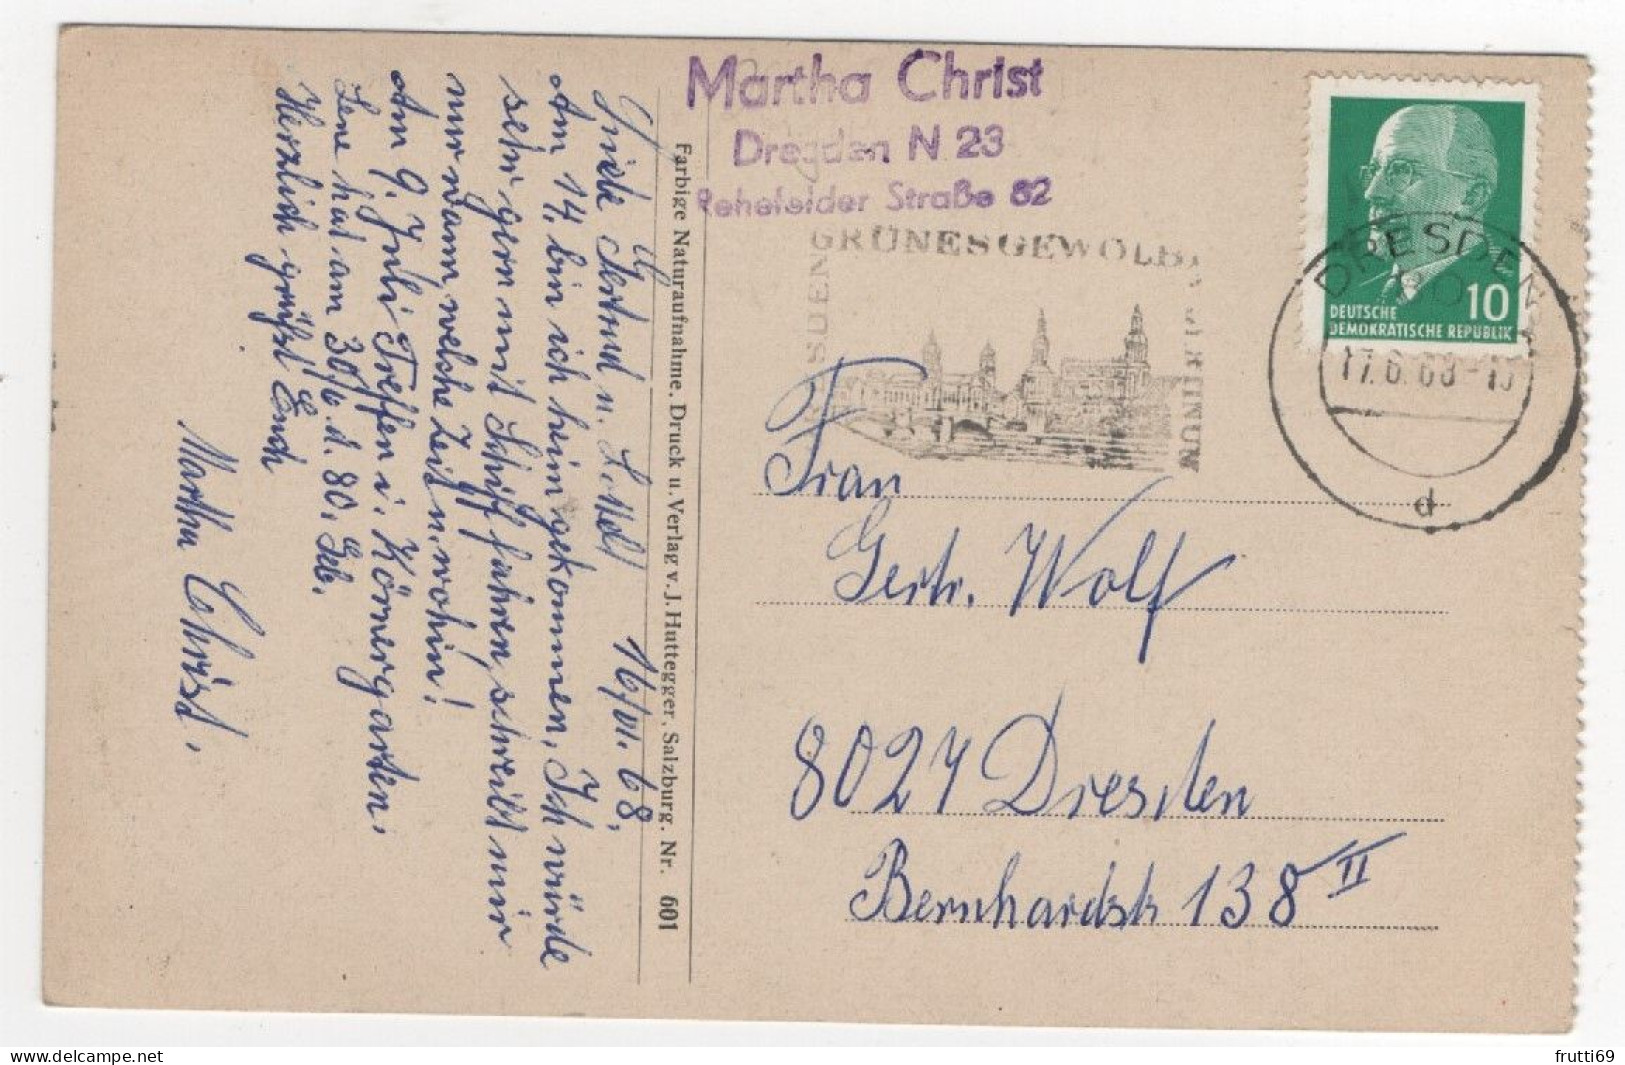 Martha Christ
Dresden N 23
Rehefelder Straße 82
GRÜNES GEWÖLBE
DRESDEN
17.6.68-15
d
10
DEUTSCHE
DEMOKRATISCHE REPUBLIK
Liebe Gertrud u. Lottel 16/VI. 68.
Am 14. bin ich heim gekommen, Ich würde
sehr gern mit Schiff fahren, schreibt mir
nur wann, welche Zeit u. wohin!
Am 9. Juli Treffen i. Körnergarten.
Lene hat am 30/6. d. 80. Geb.
Herzlich grüßt Euch
Martha Christ.
Farbige Naturaufnahme. Druck u. Verlag v. J. Huttegger, Salzburg. Nr. 601
Frau
Gertr. Wolf
8027 Dresden
Bernhardstr 138 II
frutti69
www.delcampe.net